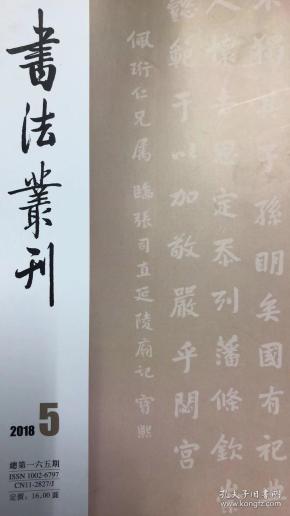 書法叢刊
不獨其子孫明矣國有祀典
人懷去思定忝列藩條欽崇
懿範于以加敬嚴乎閟宮
佩珩仁兄屬 臨張司直延陵廟記 寶熙
2018 5
總第一六五期
ISSN 1002-6797
CN11-2827/J
定價：16.00圓
孔夫子旧书网